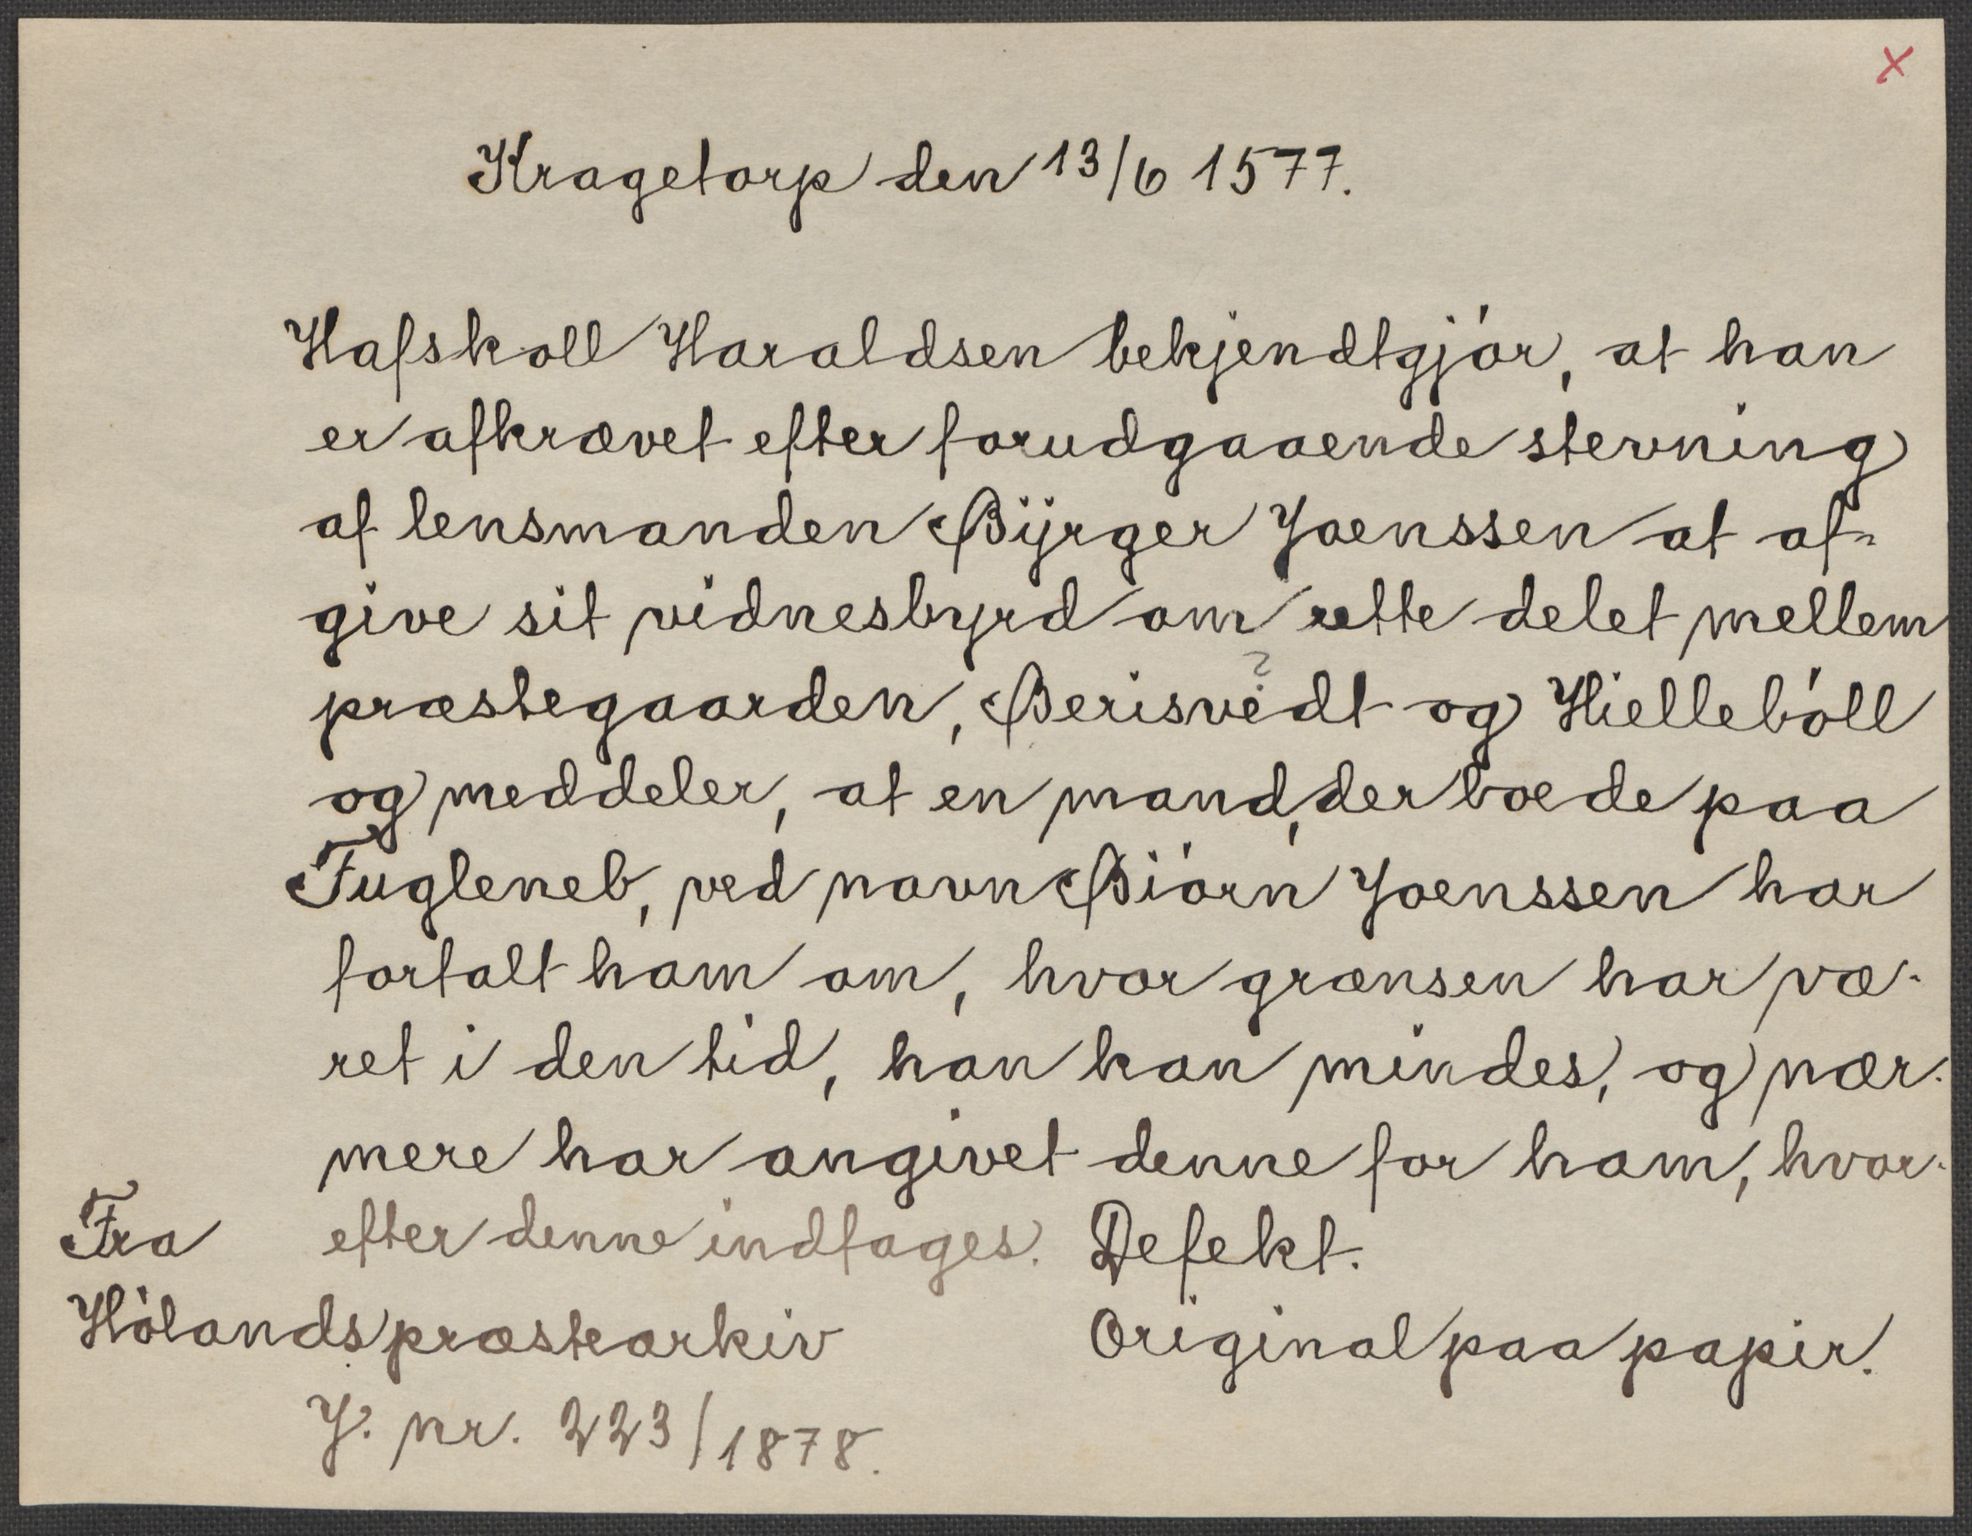 x
Kragetorp den 13/6 1577.
Hafskoll Haraldsen bekjendtgjór, at han
er afkrævet efter forudgaaende stevning
af lensmanden Bÿrger Joenssen at af-
give sit vidnesbyrd om rette delet mellem
præstegaarden, Berisvedt ? og Hiellebóll
og meddeler, at en mand, der boede paa
Fugleneb, ved navn Biórn Joenssen har
fortalt ham om, hvor grænsen har væ-
ret i den tid, han kan mindes, og nær-
mere har angivet denne for ham, hvor-
efter denne indtages. Defekt.
Fra
Hólands præstearkiv
Original paa papir.
J. nr. 223/1878.